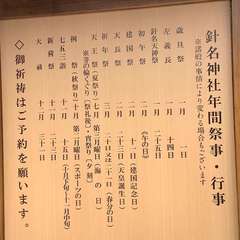 針名神社年間祭事・行事
※諸般の事情により変わる場合もございます
歳旦祭 一月 一日
左義長 一月 十四日
針名天神祭
初午祭 二月 (午の日)
建国祭 二月 十一日(建国記念日)
天長祭 二月 二十三日(天皇誕生日)
祈年祭 三月 二十日又は二十一日(春分の日)
天王祭(夏祭り)七月 第三月曜日(海の日)
※茅の輪くぐり(祭礼後)・宵祭り(夕刻)
例祭(秋祭り)十月 第二月曜日(スポーツの日)
七五三詣 十一月 十五日(十月下旬~十二月中旬)
新嘗祭 十一月 二十三日
大祓 十二月 三十一日
◇御祈祷はご予約を願います。